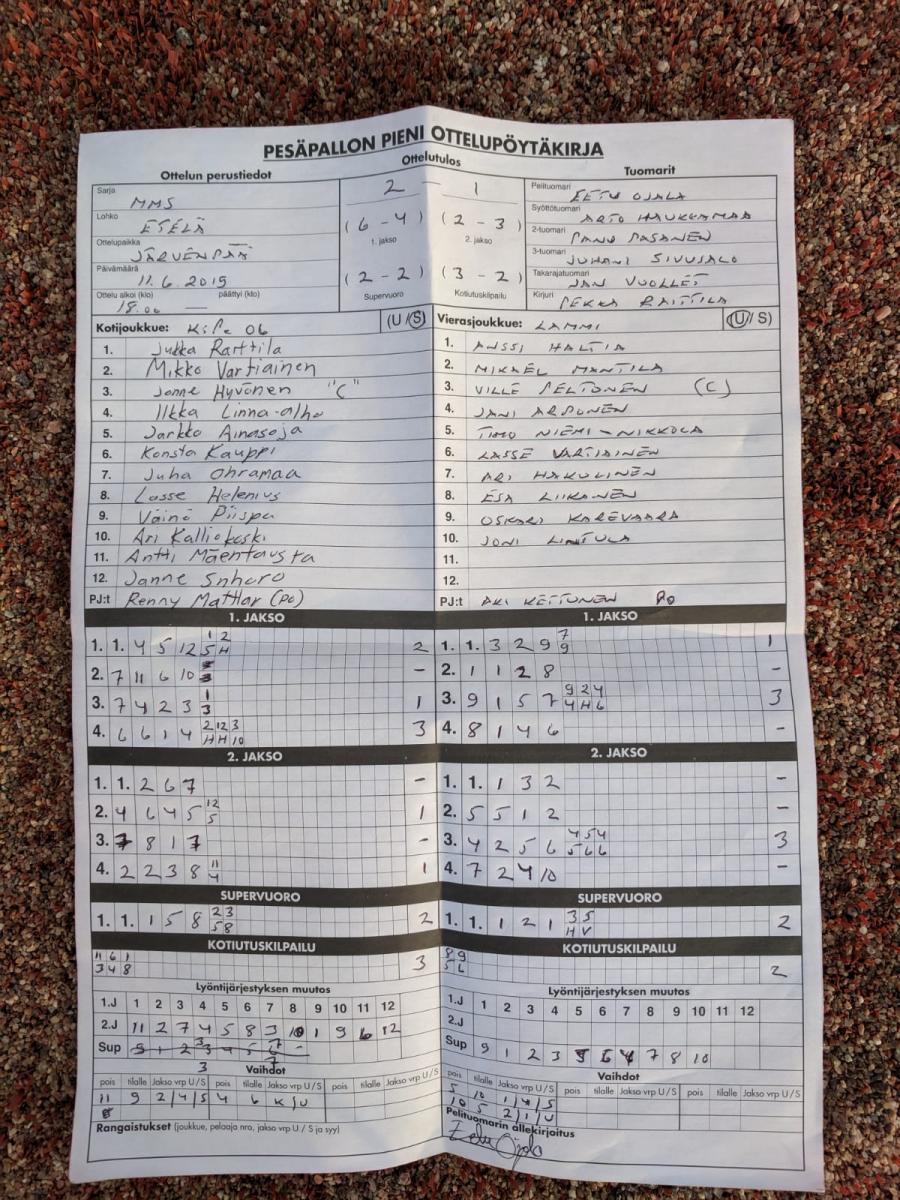 PESÄPALLON PIENI OTTELUPÖYTÄKIRJA
Ottelun perustiedot
Sarja
MMS
Lohko
ETELÄ
Ottelupaikka
JÄRVENPÄÄ
Päivämäärä
11.6.2019
Ottelu alkoi (klo) päättyi (klo)
18.00 —
Ottelutulos
2 - 1
(6 - 4) (2 - 3)
1. jakso 2. jakso
(2 - 2) (3 - 2)
Supervuoro Kotiutuskilpailu
Tuomarit
Pelituomari
EETU OJALA
Syöttötuomari
ARTO HAUKKAMAA
2-tuomari
PANU PASANEN
3-tuomari
JUHANI SIVUSALO
Takarajatuomari
JAN VUOLLET
Kirjuri
PEKKA RAITTILA
Kotijoukkue: KiPe 06 (U/S)
1. Jukka Rarttila
2. Mikko Vartiainen
3. Janne Hyvönen "C"
4. Ilkka Linna-aho
5. Jarkko Ainasoja
6. Konsta Kauppi
7. Juha Ohramaa
8. Lasse Helenius
9. Väinö Piispa
10. Ari Kalliokoski
11. Antti Mäentausta
12. Janne
PJ:t Renny Mattlar (PO)
Vierasjoukkue: LAMMI (U/S)
1. ANSSI HALTIA
2. MIKAEL MANTILA
3. VILLE PELTONEN (C)
4. JANI ARPONEN
5. TIMO NIEMI-NIKKOLA
6. LASSE VARTIAINEN
7. ARI HAKULINEN
8. ESA LIIKANEN
9. OSKARI KAREVAARA
10. JONI LINTULA
11.
12.
PJ:t AKI KETTUNEN PO
1. JAKSO
1. 1. 4 5 12 1 2 2
5 H
2. 7 11 6 10 -
3. 7 4 2 3 1 1
3
4. 6 6 1 4 2 12 3 3
H H 10
1. JAKSO
1. 1. 3 2 9 7 1
9
2. 1 1 2 8 -
3. 9 1 5 7 9 2 4 3
4 H 6
4. 8 1 4 6 -
2. JAKSO
1. 1. 2 6 7 -
2. 4 6 4 5 12 1
5
3. 7 8 1 7 -
4. 2 2 3 8 11 1
4
2. JAKSO
1. 1. 1 3 2 -
2. 5 5 1 2 -
3. 4 2 5 6 4 5 4 3
5 6 6
4. 7 2 4 10 -
SUPERVUORO
1. 1. 1 5 8 2 3 2
5 8
SUPERVUORO
1. 1. 1 2 1 3 5 2
H V
KOTIUTUSKILPAILU
11 6 1 3
3 4 8
KOTIUTUSKILPAILU
8 9 2
5 6
Lyöntijärjestyksen muutos
1.J 1 2 3 4 5 6 7 8 9 10 11 12
2.J 11 2 7 4 5 8 3 10 1 9 6 12
Sup
Vaihdot
pois tilalle Jakso vrp U/S pois tilalle Jakso vrp U/S pois tilalle Jakso vrp U/S
11 9 2/4/S 4 6 K/U
Lyöntijärjestyksen muutos
1.J 1 2 3 4 5 6 7 8 9 10 11 12
2.J
Sup 9 1 2 3 5 6 4 7 8 10
Vaihdot
pois tilalle Jakso vrp U/S pois tilalle Jakso vrp U/S pois tilalle Jakso vrp U/S
5 10 1/4/S
10 5 2/1/U
Rangaistukset (joukkue, pelaaja nro, jakso vrp U / S ja syy)
Pelituomarin allekirjoitus
Eetu Ojala